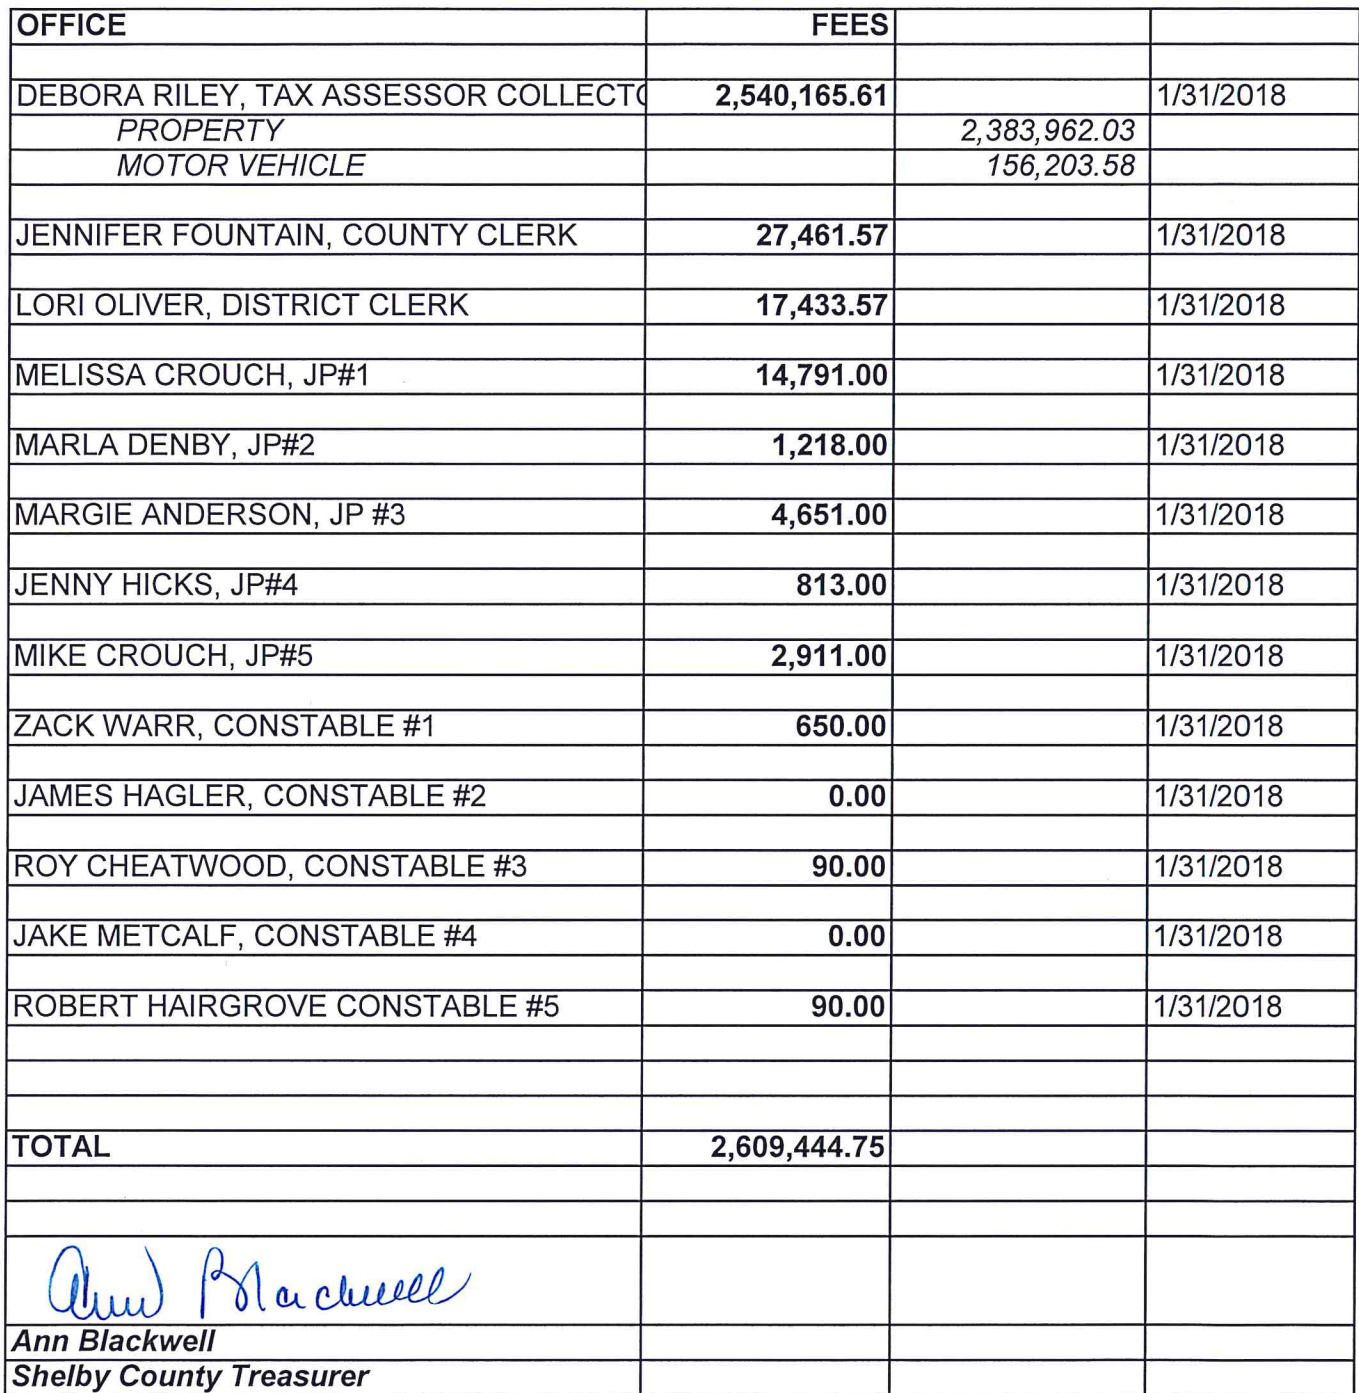 OFFICE FEES
DEBORA RILEY, TAX ASSESSOR COLLECTO 2,540,165.61 1/31/2018
PROPERTY 2,383,962.03
MOTOR VEHICLE 156,203.58
JENNIFER FOUNTAIN, COUNTY CLERK 27,461.57 1/31/2018
LORI OLIVER, DISTRICT CLERK 17,433.57 1/31/2018
MELISSA CROUCH, JP#1 14,791.00 1/31/2018
MARLA DENBY, JP#2 1,218.00 1/31/2018
MARGIE ANDERSON, JP #3 4,651.00 1/31/2018
JENNY HICKS, JP#4 813.00 1/31/2018
MIKE CROUCH, JP#5 2,911.00 1/31/2018
ZACK WARR, CONSTABLE #1 650.00 1/31/2018
JAMES HAGLER, CONSTABLE #2 0.00 1/31/2018
ROY CHEATWOOD, CONSTABLE #3 90.00 1/31/2018
JAKE METCALF, CONSTABLE #4 0.00 1/31/2018
ROBERT HAIRGROVE CONSTABLE #5 90.00 1/31/2018
TOTAL 2,609,444.75
Ann Blackwell
Ann Blackwell
Shelby County Treasurer